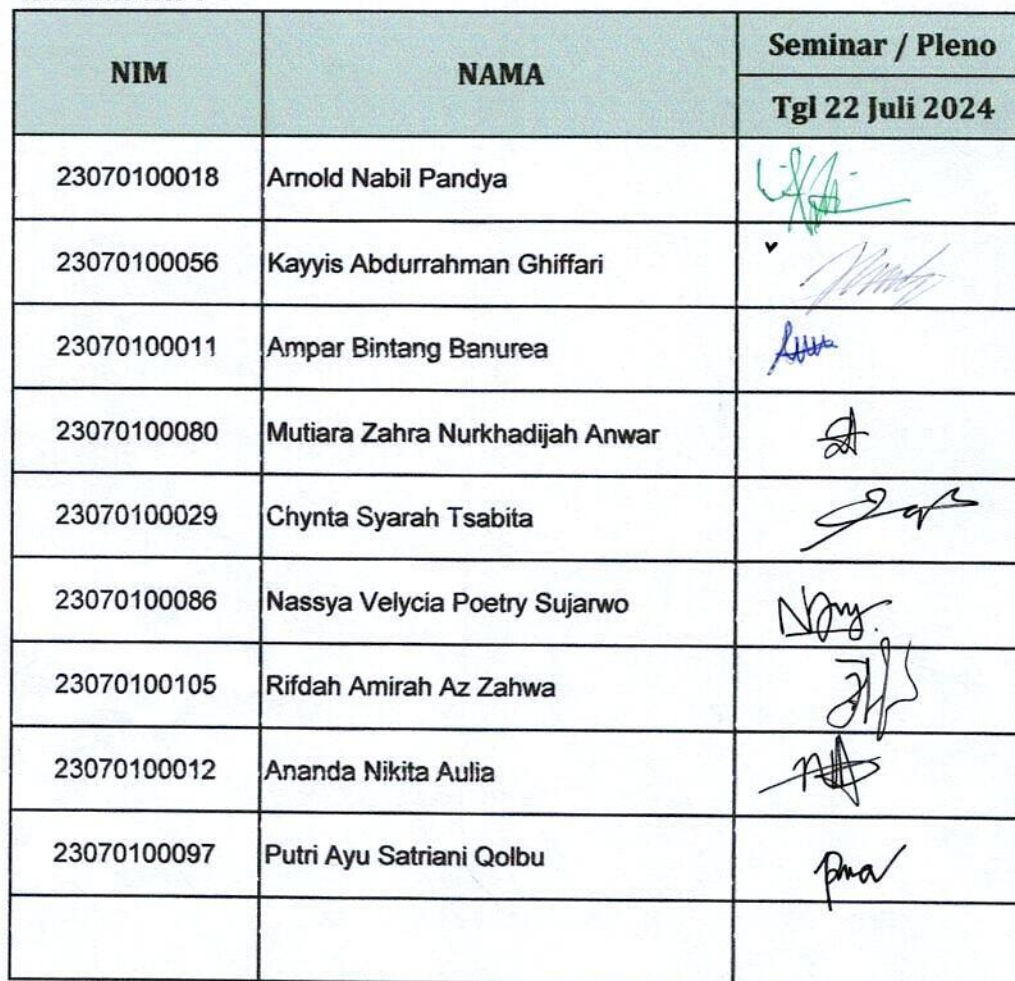 NIM NAMA Seminar / Pleno
Tgl 22 Juli 2024
23070100018 Arnold Nabil Pandya
23070100056 Kayyis Abdurrahman Ghiffari
23070100011 Ampar Bintang Banurea
23070100080 Mutiara Zahra Nurkhadijah Anwar
23070100029 Chynta Syarah Tsabita
23070100086 Nassya Velycia Poetry Sujarwo
23070100105 Rifdah Amirah Az Zahwa
23070100012 Ananda Nikita Aulia
23070100097 Putri Ayu Satriani Qolbu